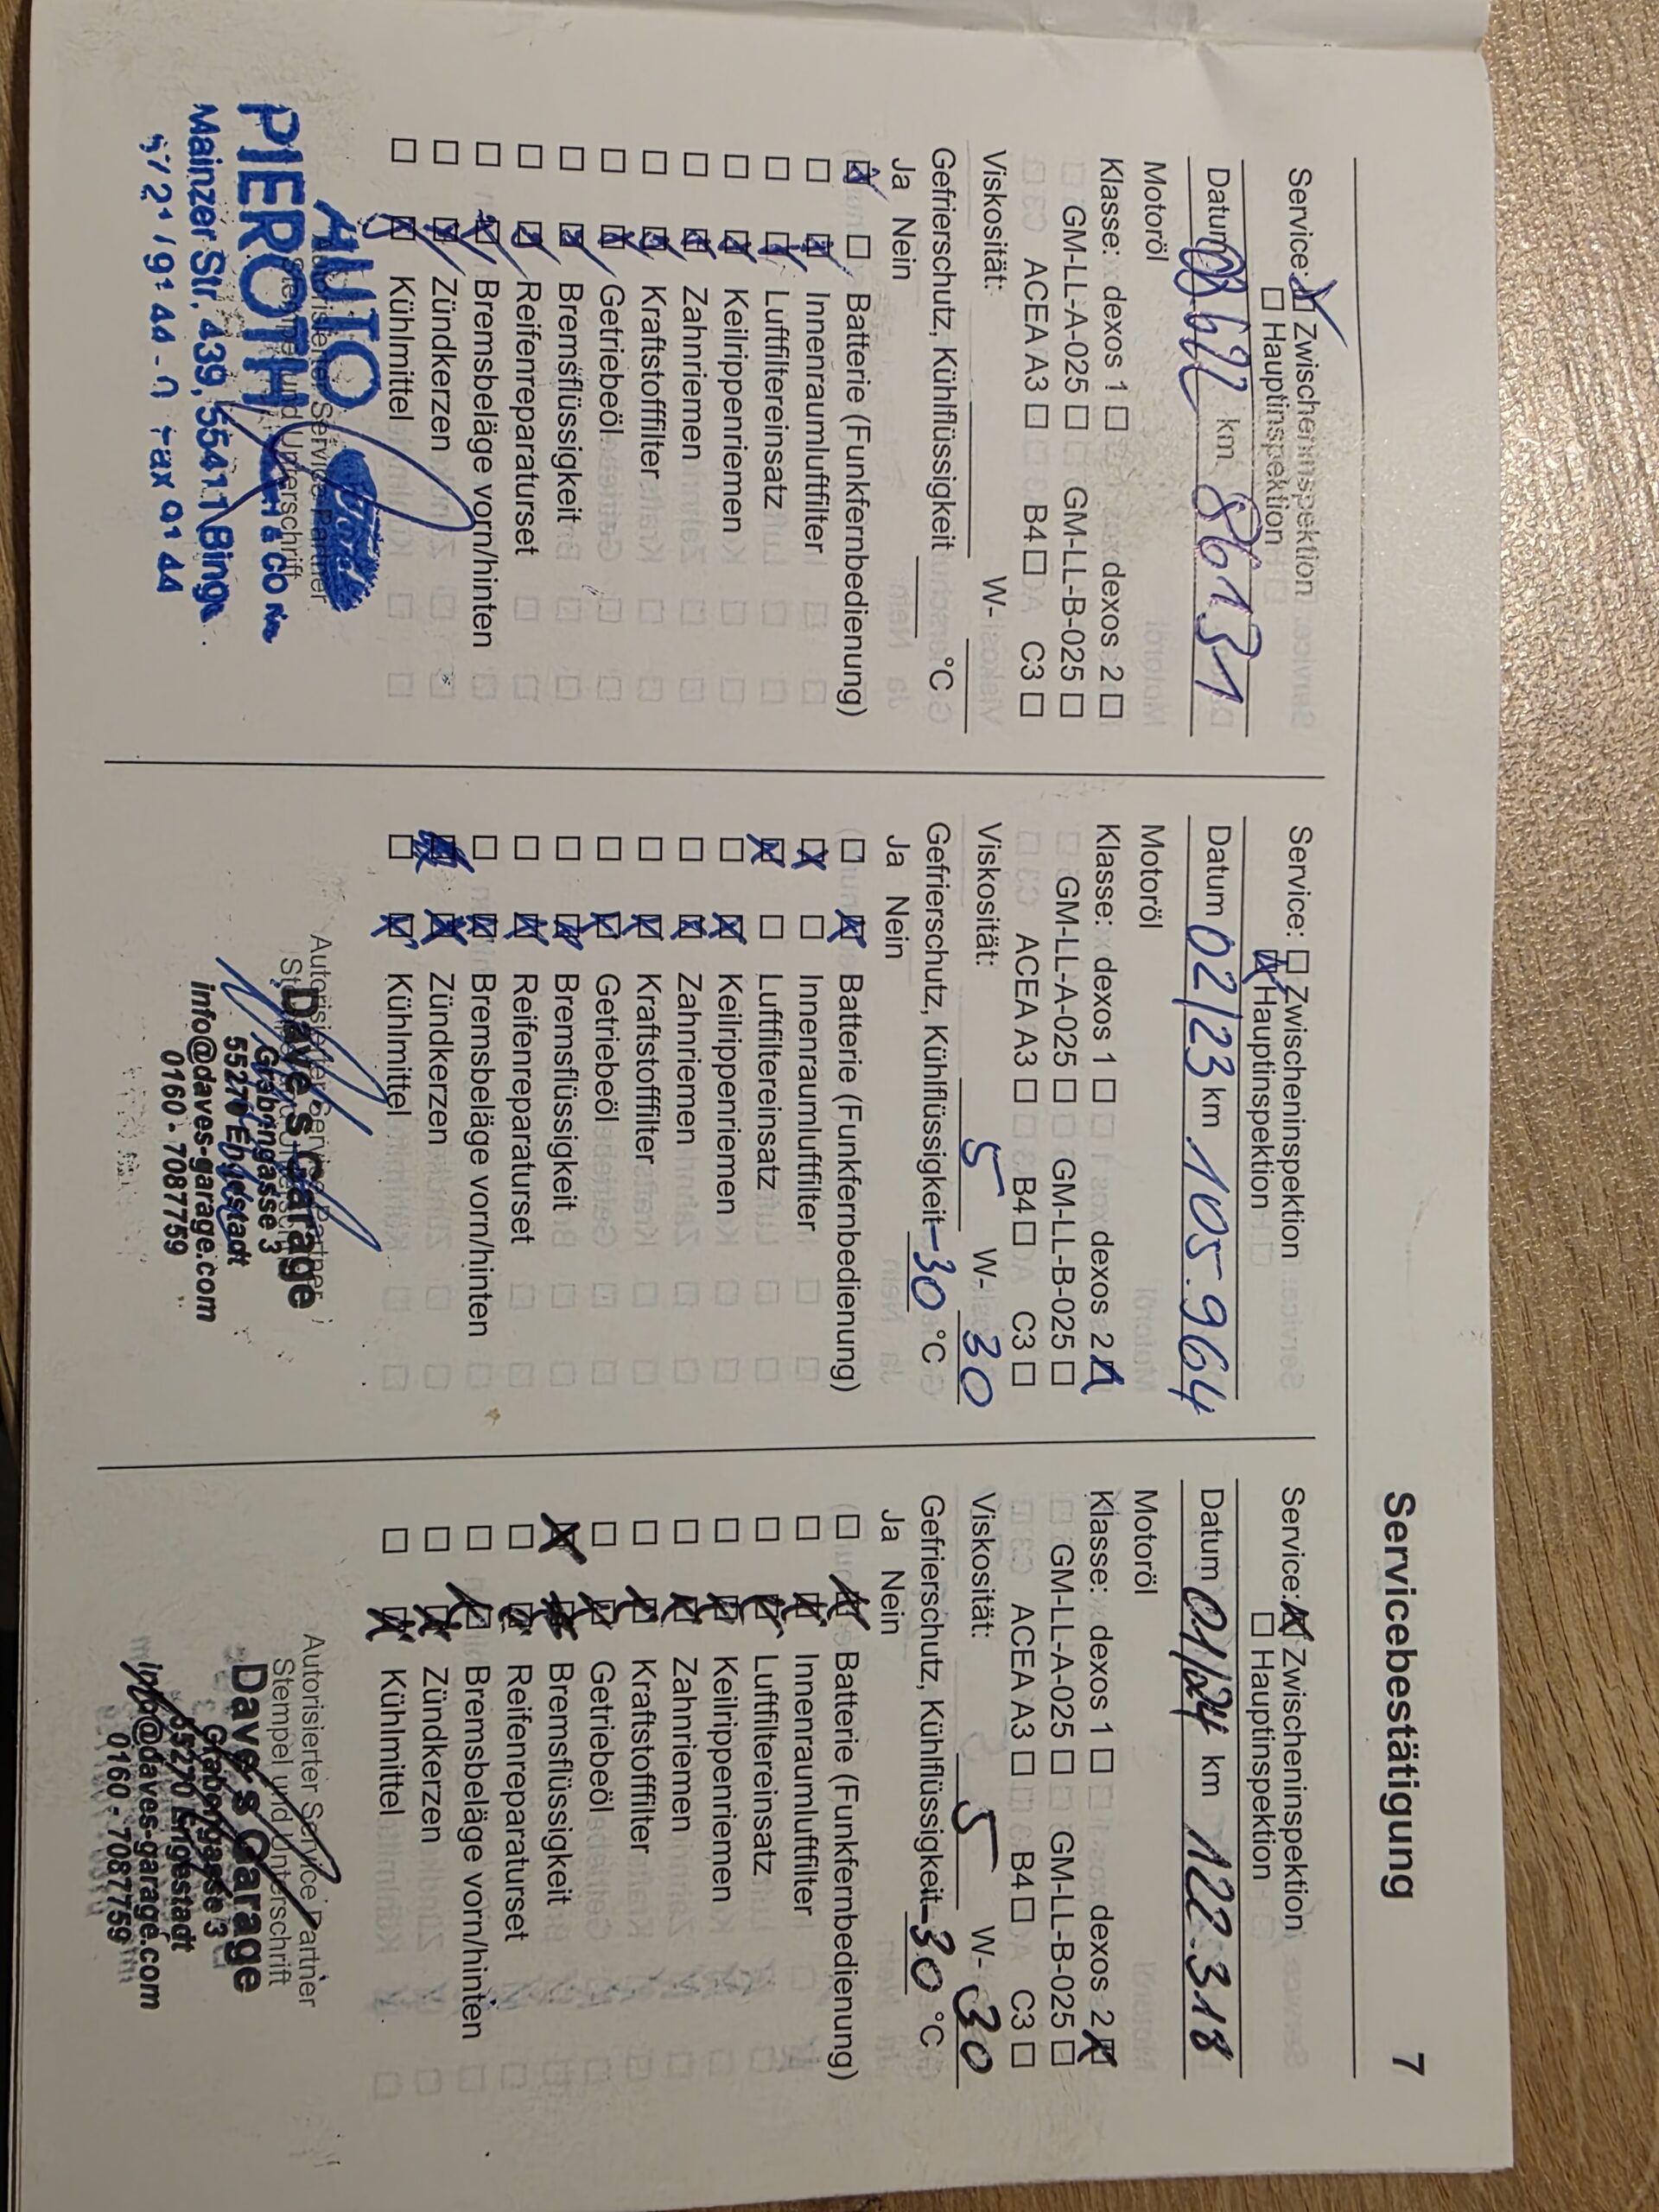 Servicebestätigung 7
Service: ☒ Zwischeninspektion
☐ Hauptinspektion
Datum km 86131
Motoröl
Klasse: dexos 1 ☐ dexos 2 ☐
GM-LL-A-025 ☐ GM-LL-B-025 ☐
ACEA A3 ☐ B4 ☐ C3 ☐
Viskosität: W-
Gefrierschutz, Kühlflüssigkeit °C
Ja Nein
☒ ☐ Batterie (Funkfernbedienung)
☐ ☒ Innenraumluftfilter
☐ ☒ Luftfiltereinsatz
☐ ☒ Keilrippenriemen
☐ ☒ Zahnriemen
☐ ☒ Kraftstofffilter
☐ ☒ Getriebeöl
☐ ☒ Bremsflüssigkeit
☐ ☒ Reifenreparaturset
☐ ☒ Bremsbeläge vorn/hinten
☐ ☒ Zündkerzen
☐ ☒ Kühlmittel
Autorisierter Service Partner
Stempel und Unterschrift
AUTO
PIEROTH
Mainzer Str. 439, 55411 Bingen
Service: ☐ Zwischeninspektion
☒ Hauptinspektion
Datum 02/23 km 105.964
Motoröl
Klasse: dexos 1 ☐ dexos 2 ☒
GM-LL-A-025 ☐ GM-LL-B-025 ☐
ACEA A3 ☐ B4 ☐ C3 ☐
Viskosität: 5 W- 30
Gefrierschutz, Kühlflüssigkeit -30 °C
Ja Nein
☐ ☒ Batterie (Funkfernbedienung)
☒ ☐ Innenraumluftfilter
☒ ☐ Luftfiltereinsatz
☐ ☒ Keilrippenriemen
☐ ☒ Zahnriemen
☐ ☒ Kraftstofffilter
☐ ☒ Getriebeöl
☐ ☒ Bremsflüssigkeit
☐ ☒ Reifenreparaturset
☐ ☒ Bremsbeläge vorn/hinten
☒ ☒ Zündkerzen
☐ ☒ Kühlmittel
Autorisierter Service Partner
Dave's Garage
Grabengasse 3
55270 Engelstadt
info@daves-garage.com
0160 - 7087759
Service: ☒ Zwischeninspektion
☐ Hauptinspektion
Datum 01/24 km 122.318
Motoröl
Klasse: dexos 1 ☐ dexos 2 ☒
GM-LL-A-025 ☐ GM-LL-B-025 ☐
ACEA A3 ☐ B4 ☐ C3 ☐
Viskosität: 5 W- 30
Gefrierschutz, Kühlflüssigkeit -30 °C
Ja Nein
☐ ☒ Batterie (Funkfernbedienung)
☐ ☒ Innenraumluftfilter
☐ ☒ Luftfiltereinsatz
☐ ☒ Keilrippenriemen
☐ ☒ Zahnriemen
☐ ☒ Kraftstofffilter
☐ ☒ Getriebeöl
☒ ☒ Bremsflüssigkeit
☐ ☒ Reifenreparaturset
☐ ☒ Bremsbeläge vorn/hinten
☐ ☒ Zündkerzen
☐ ☒ Kühlmittel
Autorisierter Service Partner
Stempel und Unterschrift
Dave's Garage
Grabengasse 3
55270 Engelstadt
info@daves-garage.com
0160 - 7087759